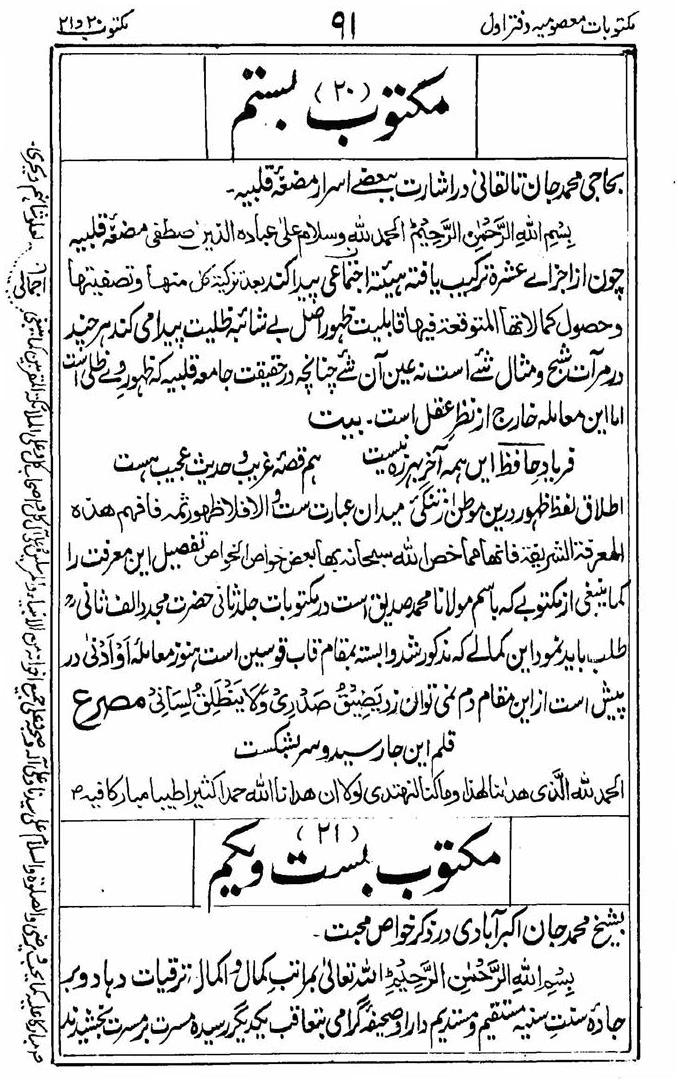 مکتوبات معصومیہ دفتر اول
۹۱
مکتوب ۲۰ و ۲۱
مکتوب (۲۰) بستم
بحاجی محمد جان تالقانی در اشارت ببعضے اسرار مضغهٔ قلبیہ۔
بِسْمِ اللهِ الرَّحْمٰنِ الرَّحِيْمِ الحمد لله وسلام علی عباده الذین اصطفی مضغهٔ قلبیه
چون از اجزاے عشره ترکیب یافته هیئتهٔ اجتماعی پیدا کند بعد تزکیة کل منها و تصفیتها
وحصول کمالاتها المتوقعة فیها قابلیت ظهور اصل بے شائبهٔ ظلیت پیدا می کند هر چند
در مرآت شبح و مثال شئے است نه عین آن شئے چنانچه در حقیقت جامعه قلبیه که ظهور وے ظلی است
اما این معامله خارج از نظر عقل است۔ بیت
فریادِ حافظ این همه آخر بهرزه نیست هم قصهٔ غریب و حدیث عجیب هست
اطلاق لفظ ظهور درین موطن از تنگیٔ میدان عبارت ست و الا فلا ظهور ثمه فافهم هذه
المعرفة الشریفة فانها مما خص الله سبحانه بها بعض خواص الخواص تفصیل این معرفت را
کما ینبغی از مکتوبے که باسم مولانا محمد صدیق است در مکتوبات جلد ثانی حضرت مجدد الف ثانی رح
طلب باید نمود این کمالے که مذکور شد وابسته بمقام قاب قوسین است هنوز معاملهٔ او ادنی در
پیش است از این مقام دم نمی توان زد یَضِیْقُ صَدْرِیْ وَلَا یَنْطَلِقُ لِسَانِیْ مصرع
قلم این جا رسید و سر بشکست
الحمد لله الّذی هدٰنا لهٰذا وما کنا لنهتدی لولا ان هدانا الله حمدا کثیرا طیبا مبارکا فیه
مکتوب (۲۱) بست ویکم
بشیخ محمد جان اکبرآبادی در ذکر خواص محبت۔
بِسْمِ اللهِ الرَّحْمٰنِ الرَّحِيْمِ الله تعالیٰ بمراتب کمال و اکمال ترقیات دهاد و بر
جادهٔ سنت سنیه مستقیم و مستدیم دارا و صحیفهٔ گرامی بتعاقب یکدیگر رسیده مسرت بر مسرت بخشیدند
مبارکا علیه کما یحب ربنا ویرضی والصلوٰة والسلام علی سیدنا وعلی آله وصحبه وعلی جمیع اخوانه من الانبیاء والمرسلین وعلی آل کل واصحاب کل وعلی الملائکة المقربین کما ینبغی